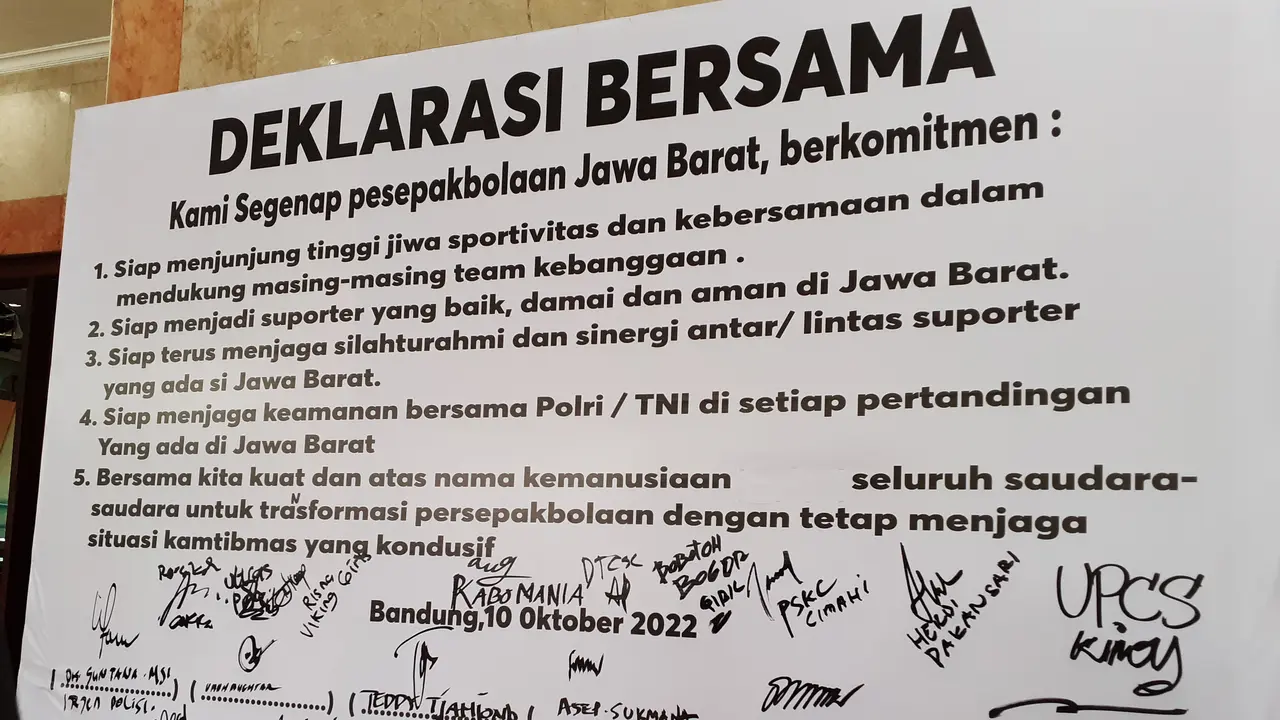 DEKLARASI BERSAMA
Kami Segenap pesepakbolaan Jawa Barat, berkomitmen :
1. Siap menjunjung tinggi jiwa sportivitas dan kebersamaan dalam
mendukung masing-masing team kebanggaan .
2. Siap menjadi suporter yang baik, damai dan aman di Jawa Barat.
3. Siap terus menjaga silahturahmi dan sinergi antar/ lintas suporter
yang ada si Jawa Barat.
4. Siap menjaga keamanan bersama Polri / TNI di setiap pertandingan
Yang ada di Jawa Barat
5. Bersama kita kuat dan atas nama kemanusiaan seluruh saudara-
saudara untuk trasformasi persepakbolaan dengan tetap menjaga
N
situasi kamtibmas yang kondusif
RISNA
VIKING
RABOMANIA
BOBOTOH
BOGOR
PSKC
CIMAHI
HERDI
PAKANSARI
UPCS
Bandung,10 Oktober 2022
DRS SUNTANA MSI
IRJEN POLISI.
TEDDY
ASEP. SUKMANA